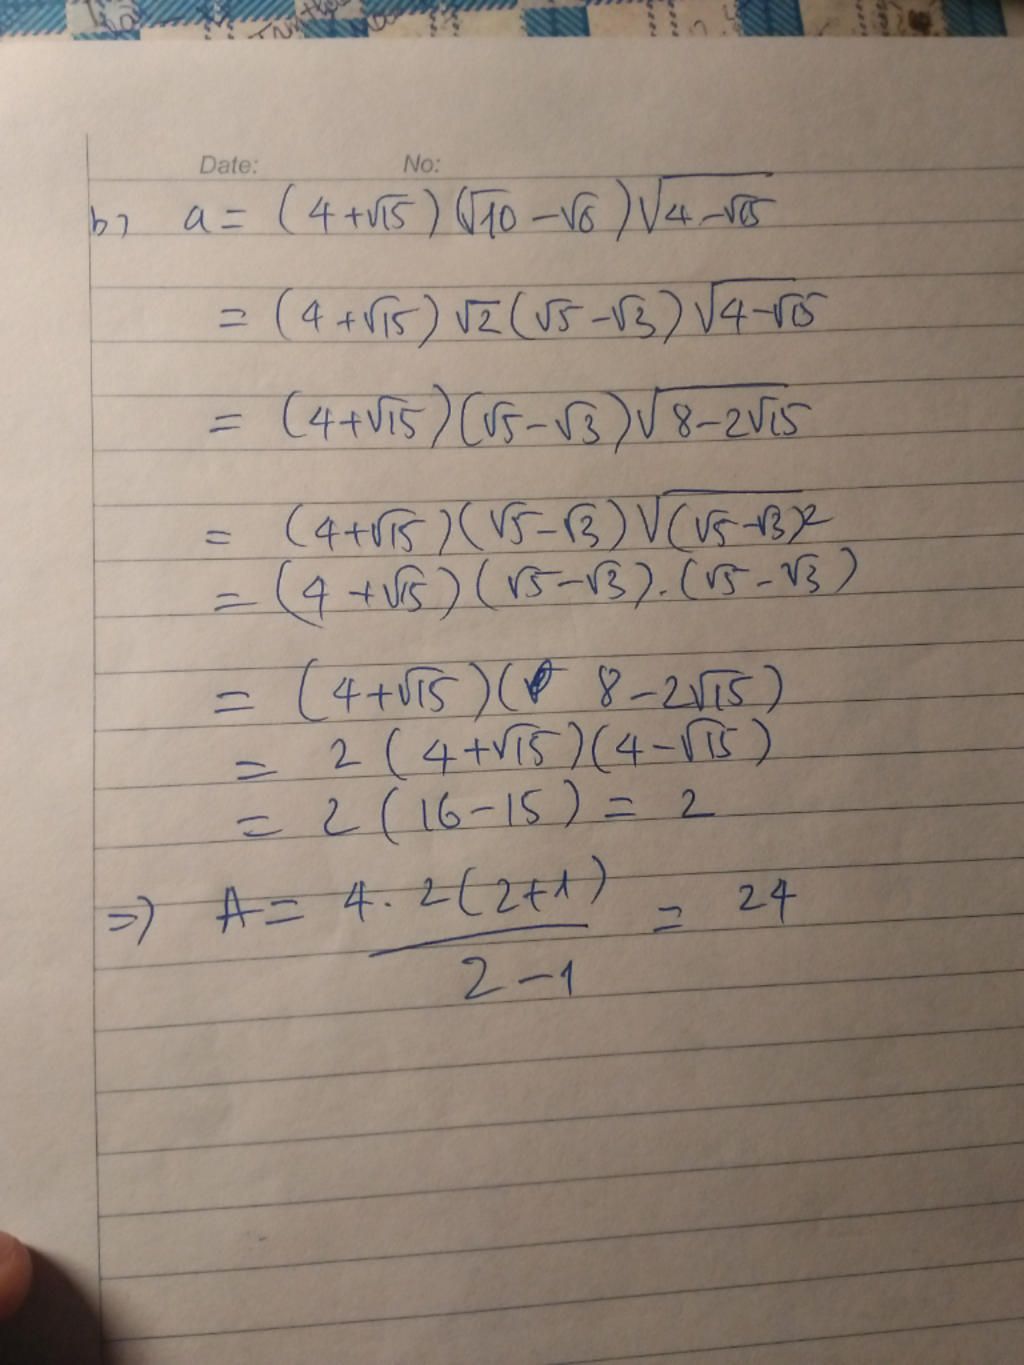 Date: No:
b) a = (4 + √15) (√10 - √6) √(4 - √15)
= (4 + √15) √2 (√5 - √3) √(4 - √15)
= (4 + √15) (√5 - √3) √(8 - 2√15)
= (4 + √15) (√5 - √3) √(√5 - √3)²
= (4 + √15) (√5 - √3) . (√5 - √3)
= (4 + √15) ( 8 - 2√15)
= 2 (4 + √15) (4 - √15)
= 2 (16 - 15) = 2
=> A = 4. 2 (2+1) / 2 - 1 = 24